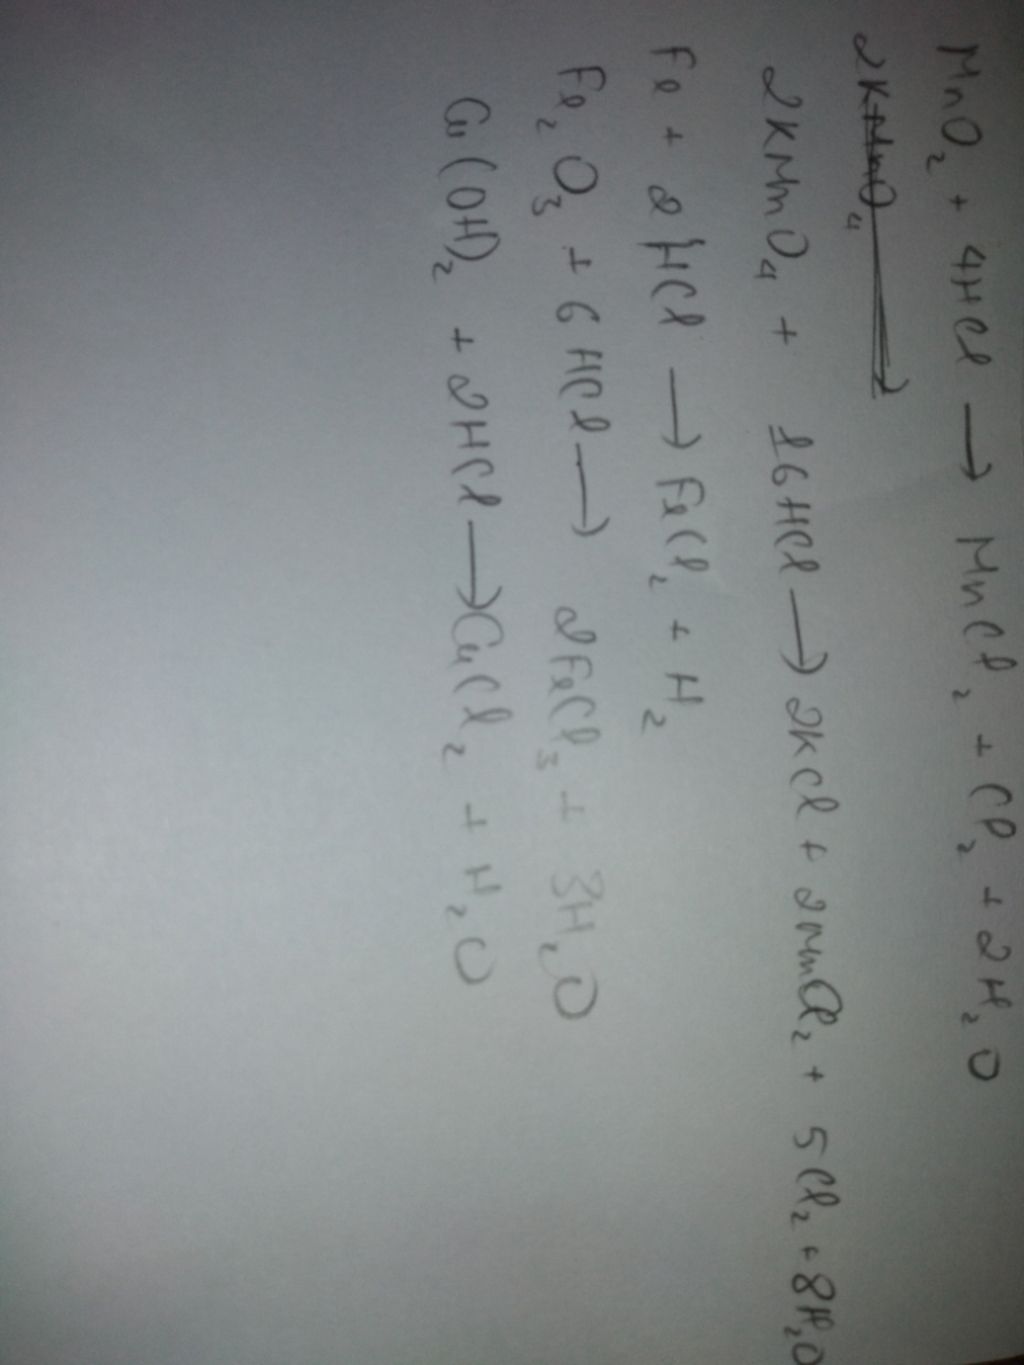 MnO₂ + 4HCl → MnCl₂ + Cl₂ + 2H₂O
2KMnO₄ →
2KMnO₄ + 16HCl → 2KCl + 2MnCl₂ + 5Cl₂ + 8H₂O
Fe + 2HCl → FeCl₂ + H₂
Fe₂O₃ + 6HCl → 2FeCl₃ + 3H₂O
Cu(OH)₂ + 2HCl → CuCl₂ + H₂O